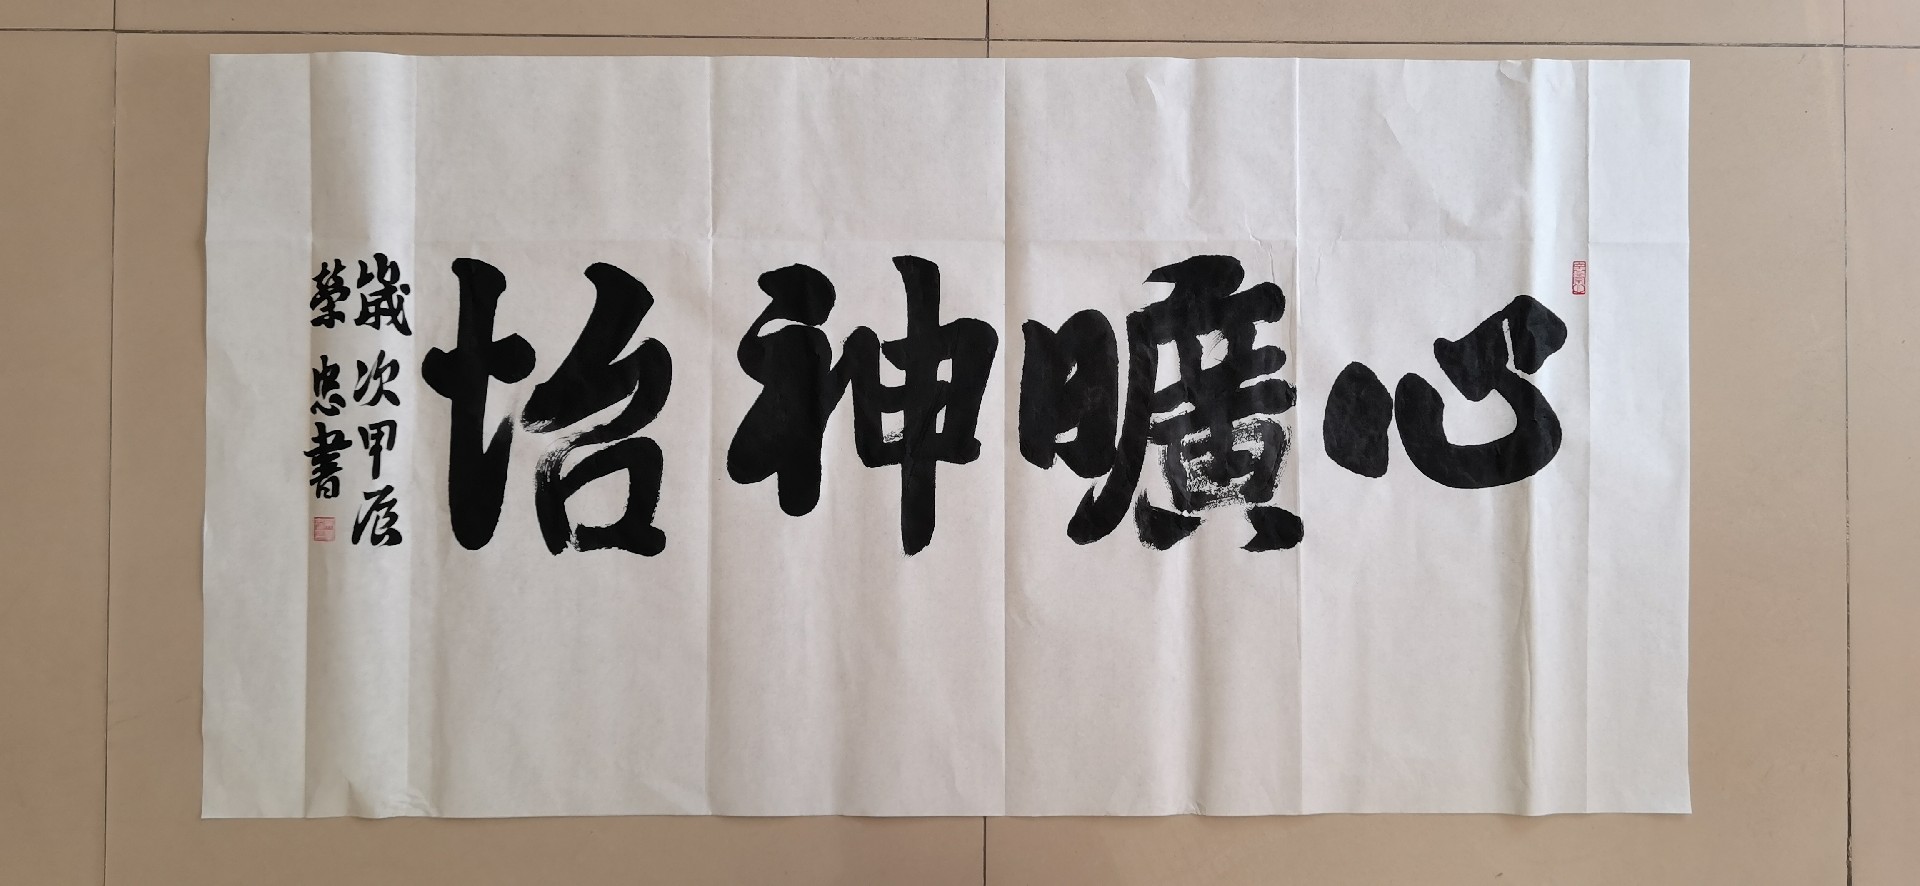 心曠神怡
歲次甲辰
榮忠書